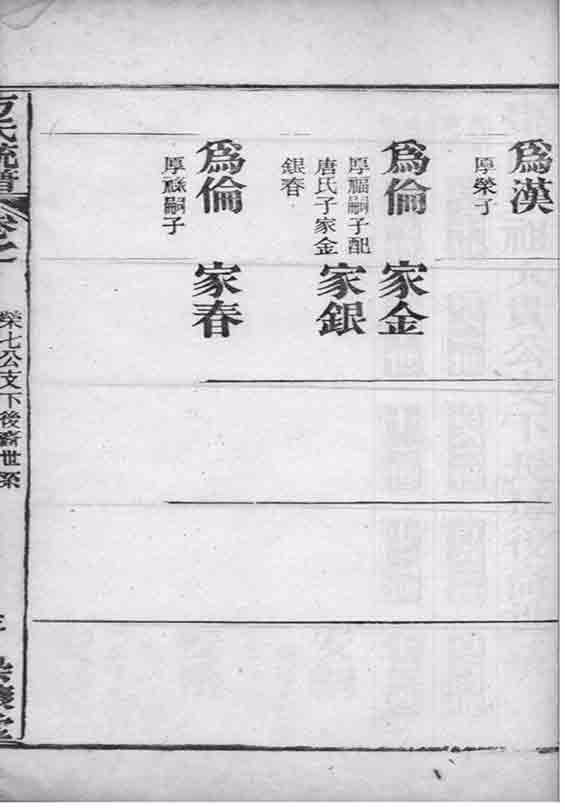 爲漢
厚榮子
爲倫
厚福嗣子配
唐氏子家金
銀春
家金
家銀
爲倫
厚繇嗣子
家春
氏統譜
卷之
榮七公支下後裔世系